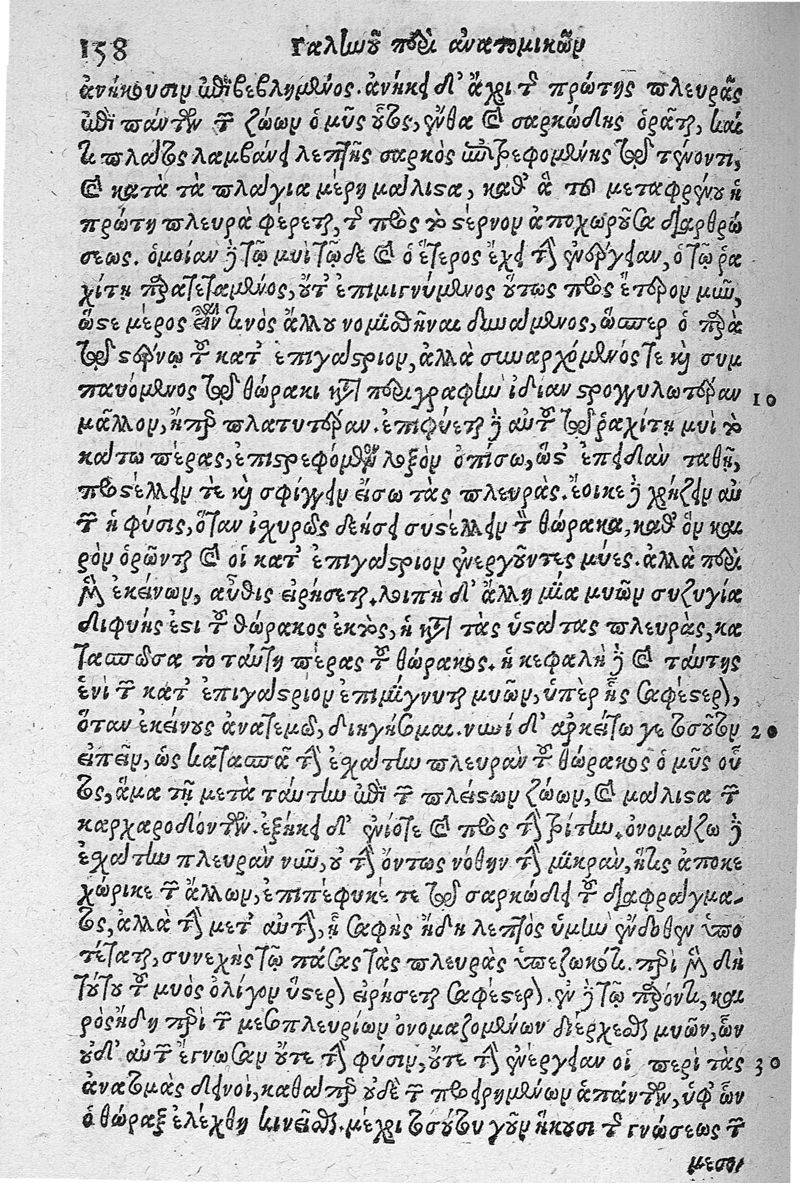 158 Γαλίωοῦ περὶ ἀνατομικῶν
ἀνήκουσιν ἐπιβεβλημένος. ἀνήκει δ' ἄχρι τῆς πρώτης πλευρᾶς
ἐπὶ πάντων τῶν ζώων ὁ μῦς οὗτος, ἔνθα καὶ σαρκώδης ὁρᾶται, καί
τι πλάτος λαμβάνει λεπτῆς σαρκὸς ἐπιτρεφομένης τῷ τένοντι,
καὶ κατὰ τὰ πλάγια μέρη μάλιστα, καθ' ἃ τοῦ μεταφρένου ἡ
πρώτη πλευρὰ φέρεται, τῆς πρὸς τὸ στέρνον ἀποχωροῦσα διαρθρώ
σεως. ὁμοίαν δὲ τῷ μυὶ τῷδε καὶ ὁ ἕτερος ἔχει τὴν ἐνέργειαν, ὁ τῷ ῥα
χίτῃ παρατεταμένος, οὔτ' ἐπιμιγνύμενος οὕτως πρὸς ἕτερον μῦν,
ὥστε μέρος εἶναί τινος ἄλλου νομισθῆναι δυναμένος, ὥσπερ ὁ παρὰ
τῷ στέρνῳ τοῦ κατ' ἐπιγάστριον, ἀλλὰ συναρχόμενός τε καὶ συμ
παυόμενος τῷ θώρακι κατὰ περιγραφὴν ἰδίαν στρογγυλωτέραν
μᾶλλον, ἤπερ πλατυτέραν. ἐπιφύεται δὲ αὐτοῦ τῷ ῥαχίτῃ μυὶ τὸ 10
κάτω πέρας, ἐπιστρεφόμενον λοξὸν ὀπίσω, ὥστ' ἐπειδὰν ταθῇ,
προστέλλειν τε καὶ σφίγγειν εἴσω τὰς πλευράς. ἔοικε δὲ χρῄζειν αὐ
τῶν ἡ φύσις, ὅταν ἰσχυρῶς δεήσει συστέλλειν τὸν θώρακα, καθ' ὃν και
ρὸν ὁρῶνται καὶ οἱ κατ' ἐπιγάστριον ἐνεργοῦντες μύες. ἀλλὰ περὶ
μὲν ἐκείνων, αὖθις εἰρήσεται. λοιπὴ δ' ἄλλη μία μυῶν συζυγία
διφυής ἐστι τοῦ θώρακος ἐκτὸς, ἡ κατὰ τὰς ὑστάτας πλευρὰς, κα
τασπῶσα τὸ ταύτῃ πέρας τοῦ θώρακος. ἡ κεφαλὴ δὲ καὶ ταύτης
ἑνὶ τῶν κατ' ἐπιγάστριον ἐπιμίγνυται μυῶν, ὑπὲρ ἧς σαφέστερον,
ὅταν ἐκείνους ἀνατέμω, διηγήσομαι. νυνὶ δ' ἀρκείτω γε τοσοῦτον 20
εἰπεῖν, ὡς κατασπᾷ τὴν ἐσχάτην πλευρὰν τοῦ θώρακος ὁ μῦς οὗ
τος, ἅμα τῇ μετὰ ταύτην ἐπὶ τῶν πλείστων ζώων, καὶ μάλιστα τῶν
καρχαροδόντων. ἐξήκει δ' ἐνίοτε καὶ πρὸς τὴν τρίτην. ὀνομάζω δὲ
ἐσχάτην πλευρὰν νῦν, οὐ τὴν ὄντως νόθην τὴν μικρὰν, ἥτις ἀποκε
χώρικε τῶν ἄλλων, ἐπιπέφυκέ τε τῷ σαρκώδει τοῦ διαφράγμα-
τος, ἀλλὰ τὴν μετ' αὐτὴν, ᾗ σαφὴς ἤδη λεπτὸς ὑμὴν ἔνδοθεν ὑπο
τέταται, συνεχὴς τῷ πάσας τὰς πλευρὰς ὑπεζωκότι. περὶ μὲν δὴ
τούτου τοῦ μυὸς ὀλίγον ὕστερον εἰρήσεται σαφέστερον. ἐν δὲ τῷ παρόντι, και
ρὸς ἤδη περὶ τῶν μεσοπλευρίων ὀνομαζομένων διέρχεσθαι μυῶν, ὧν
οὐδ' αὐτῶν ἔγνωσαν οὔτε τὴν φύσιν, οὔτε τὴν ἐνέργειαν οἱ περὶ τὰς 30
ἀνατομὰς δεινοὶ, καθάπερ οὐδὲ τῶν προειρημένων ἁπάντων, ὑφ' ὧν
ὁ θώραξ ἐλέχθη κινεῖσθαι. μέχρι τοσούτου γοῦν ἥκουσι τῆς γνώσεως τῶν
μεσο